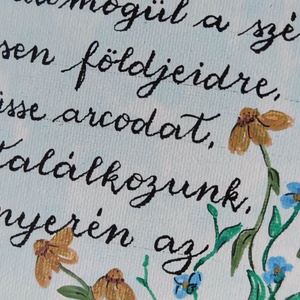 mögül a szé
sen földjeidre,
sse arcodat,
találkozunk,
nyerén az